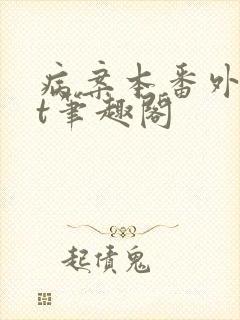 病案本番外
t笔趣阁
起债鬼